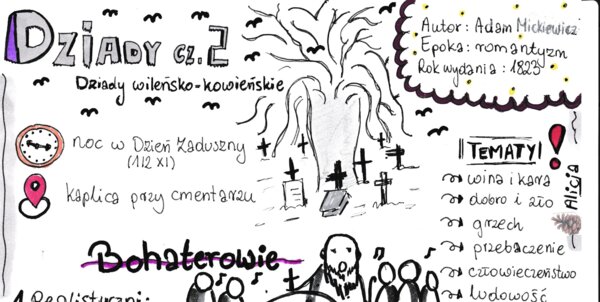 DZIADY CZ. 2
Dziady wileńsko-kowieńskie
Autor: Adam Mickiewicz
Epoka: romantyzm
Rok wydania: 1823
noc w Dzień Zaduszny
(1/2 XI)
kaplica przy cmentarzu
TEMATY!
wina i kara
dobro i zło
grzech
przebaczenie
człowieczeństwo
ludowość
Alicja
Bohaterowie
1. Realistyczni: